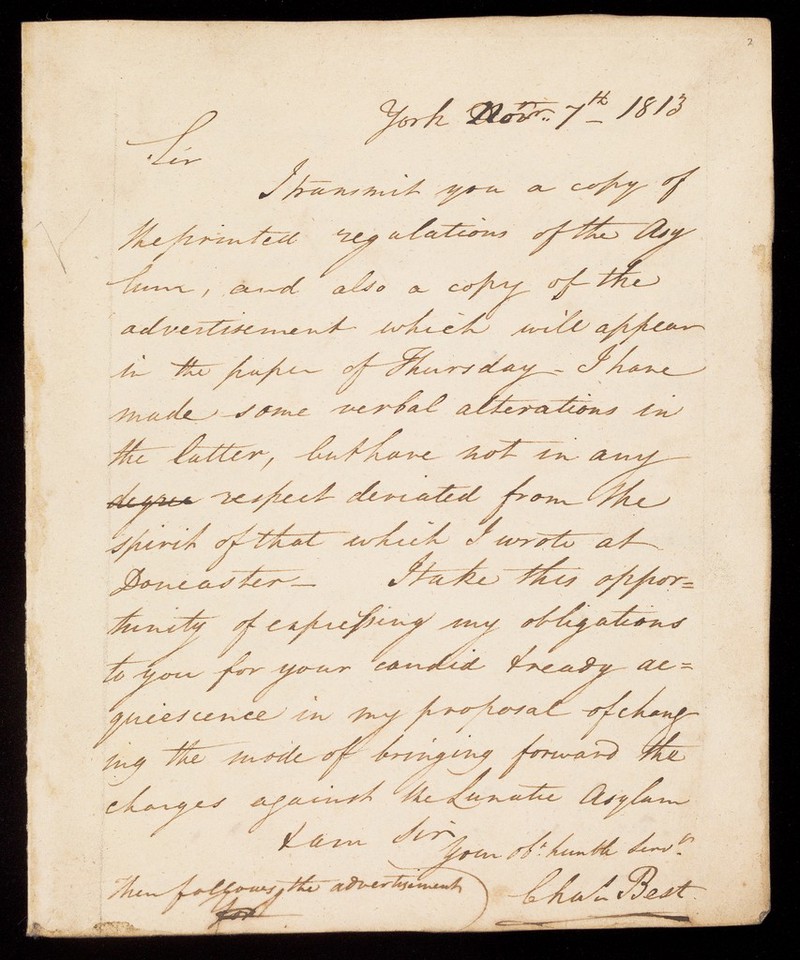 2
York Novr. 7th 1813
Sir
I transmit you a copy of
the printed regulations of the Asy
lum, and also a copy of the
advertisement which will appear
in the paper of Thursday - I have
made some verbal alterations in
the latter, but have not in any
degree respect deviated from the
spirit of that which I wrote at
Doncaster - I take this oppor=
tunity of expressing my obligations
to you for your candid & ready ac=
quiescence in my proposal of chang
ing the mode of bringing forward the
charges against the Lunatic Asylum
& am Sir
Your obt. humble Servt.
Chas. Best
then follows the advertisement
for